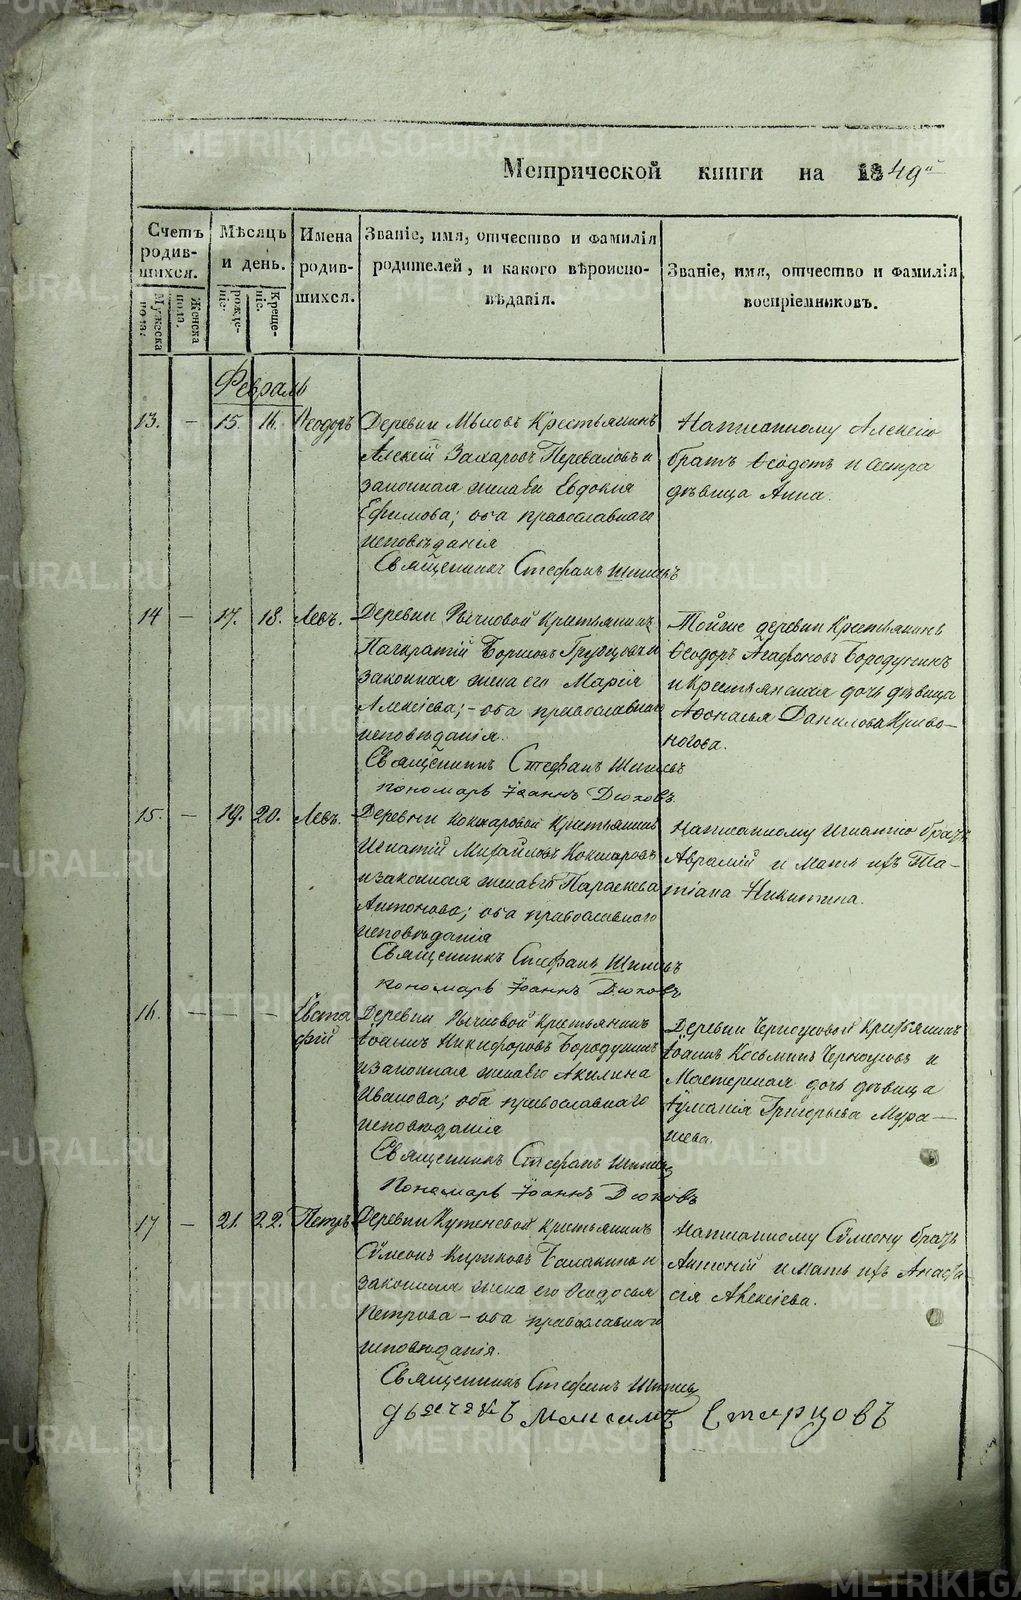 Метрической книги на 1849й
Счетъ родив-шихся.
Мужеска пола.
Женска пола.
Мѣсяцъ и день.
рожде-ніе.
Креще-ніе.
Имена родив-шихся.
Званіе, имя, отчество и фамилія
родителей, и какого вѣроиспо-
вѣданія.
Званіе, имя, отчество и фамилія
воспріемниковъ.
Февраль
13. — 15. 16. Ѳеодоръ
Деревни Мысовъ Крестьянинъ
Алексій Захаровъ Переваловъ и
законная жена его Евдокия
Ефимова; оба православнаго
исповѣданія
Священникъ Стефанъ
Написанному Алексію
братъ Ѳеодотъ и сестра
дѣвица Анна.
14 — 17. 18. Левъ.
Деревни Рычковой Крестьянинъ
Панкратій Борисовъ и
законная жена его Марія
Алексіева; — оба православнаго
исповѣданія.
Священникъ Стефанъ
пономарь Іоаннъ Дюковъ.
Тойже деревни Крестьянинъ
Ѳеодоръ Агафоновъ Бородулинъ
и крестьянская дочь дѣвица
Афонасья Данилова Криво-
ногова.
15. — 19. 20. Левъ.
Деревни Кокшаровой Крестьянинъ
Игнатій Михайловъ Кокшаровъ
и законная жена его Параскева
Антонова; оба православнаго
исповѣданія
Священникъ Стефанъ
пономарь Іоаннъ Дюковъ
Написанному Игнатію братъ
Аврамій и мать ихъ Та-
тіана Никитина.
16. — — — Евста
фій
Деревни Рычковой Крестьянинъ
Іоаннъ Никифоровъ Бородулинъ
и законная жена его Акилина
Иванова; оба православнаго
исповѣданія
Священникъ Стефанъ
Пономарь Іоаннъ Дюковъ
Деревни Черноусовой Крестьянинъ
Іоаннъ Косьминъ Черноусовъ и
Мастерская дочь дѣвица
Григорьева Мура-
шева.
17 — 21. 22. Петръ
Деревни крестьянинъ
Сѵмеонъ Кириковъ Балакинъ и
законная жена его Ѳеодосья
Петрова — оба православнаго
исповѣданія.
Священникъ Стефанъ
дьячекъ Максимъ Старцовъ
Написанному Сѵмеону братъ
Антоній и мать ихъ Анаста-
сія Алексіева.
METRIKI.GASO-URAL.RU